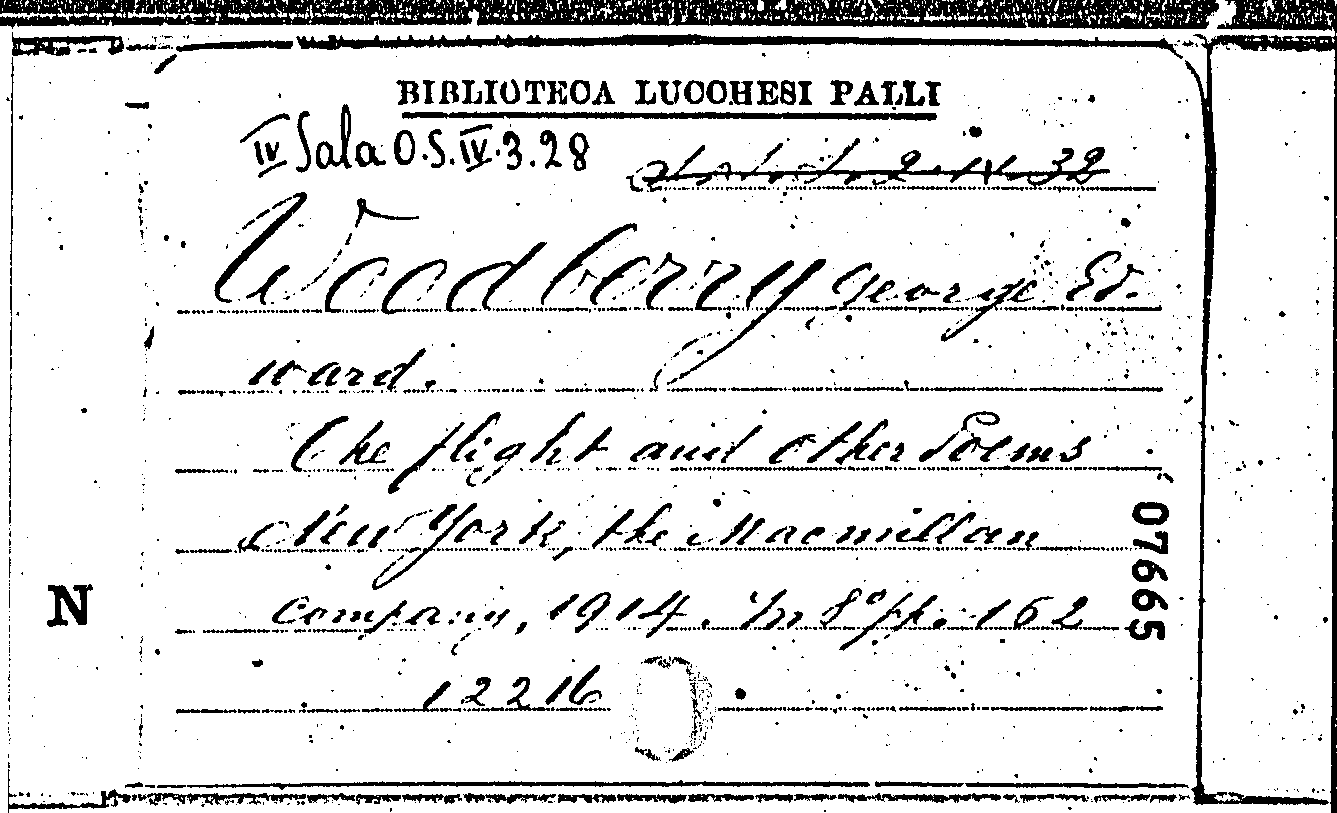 BIBLIOTECA LUCCHESI PALLI
IV Sala O.S. IV.3.28
2. IX. 32
Woodberry George Ed-
ward.
The flight and other Poems
New York, the Macmillan
company, 1914. In 8° pp. 162
12216
N
07665